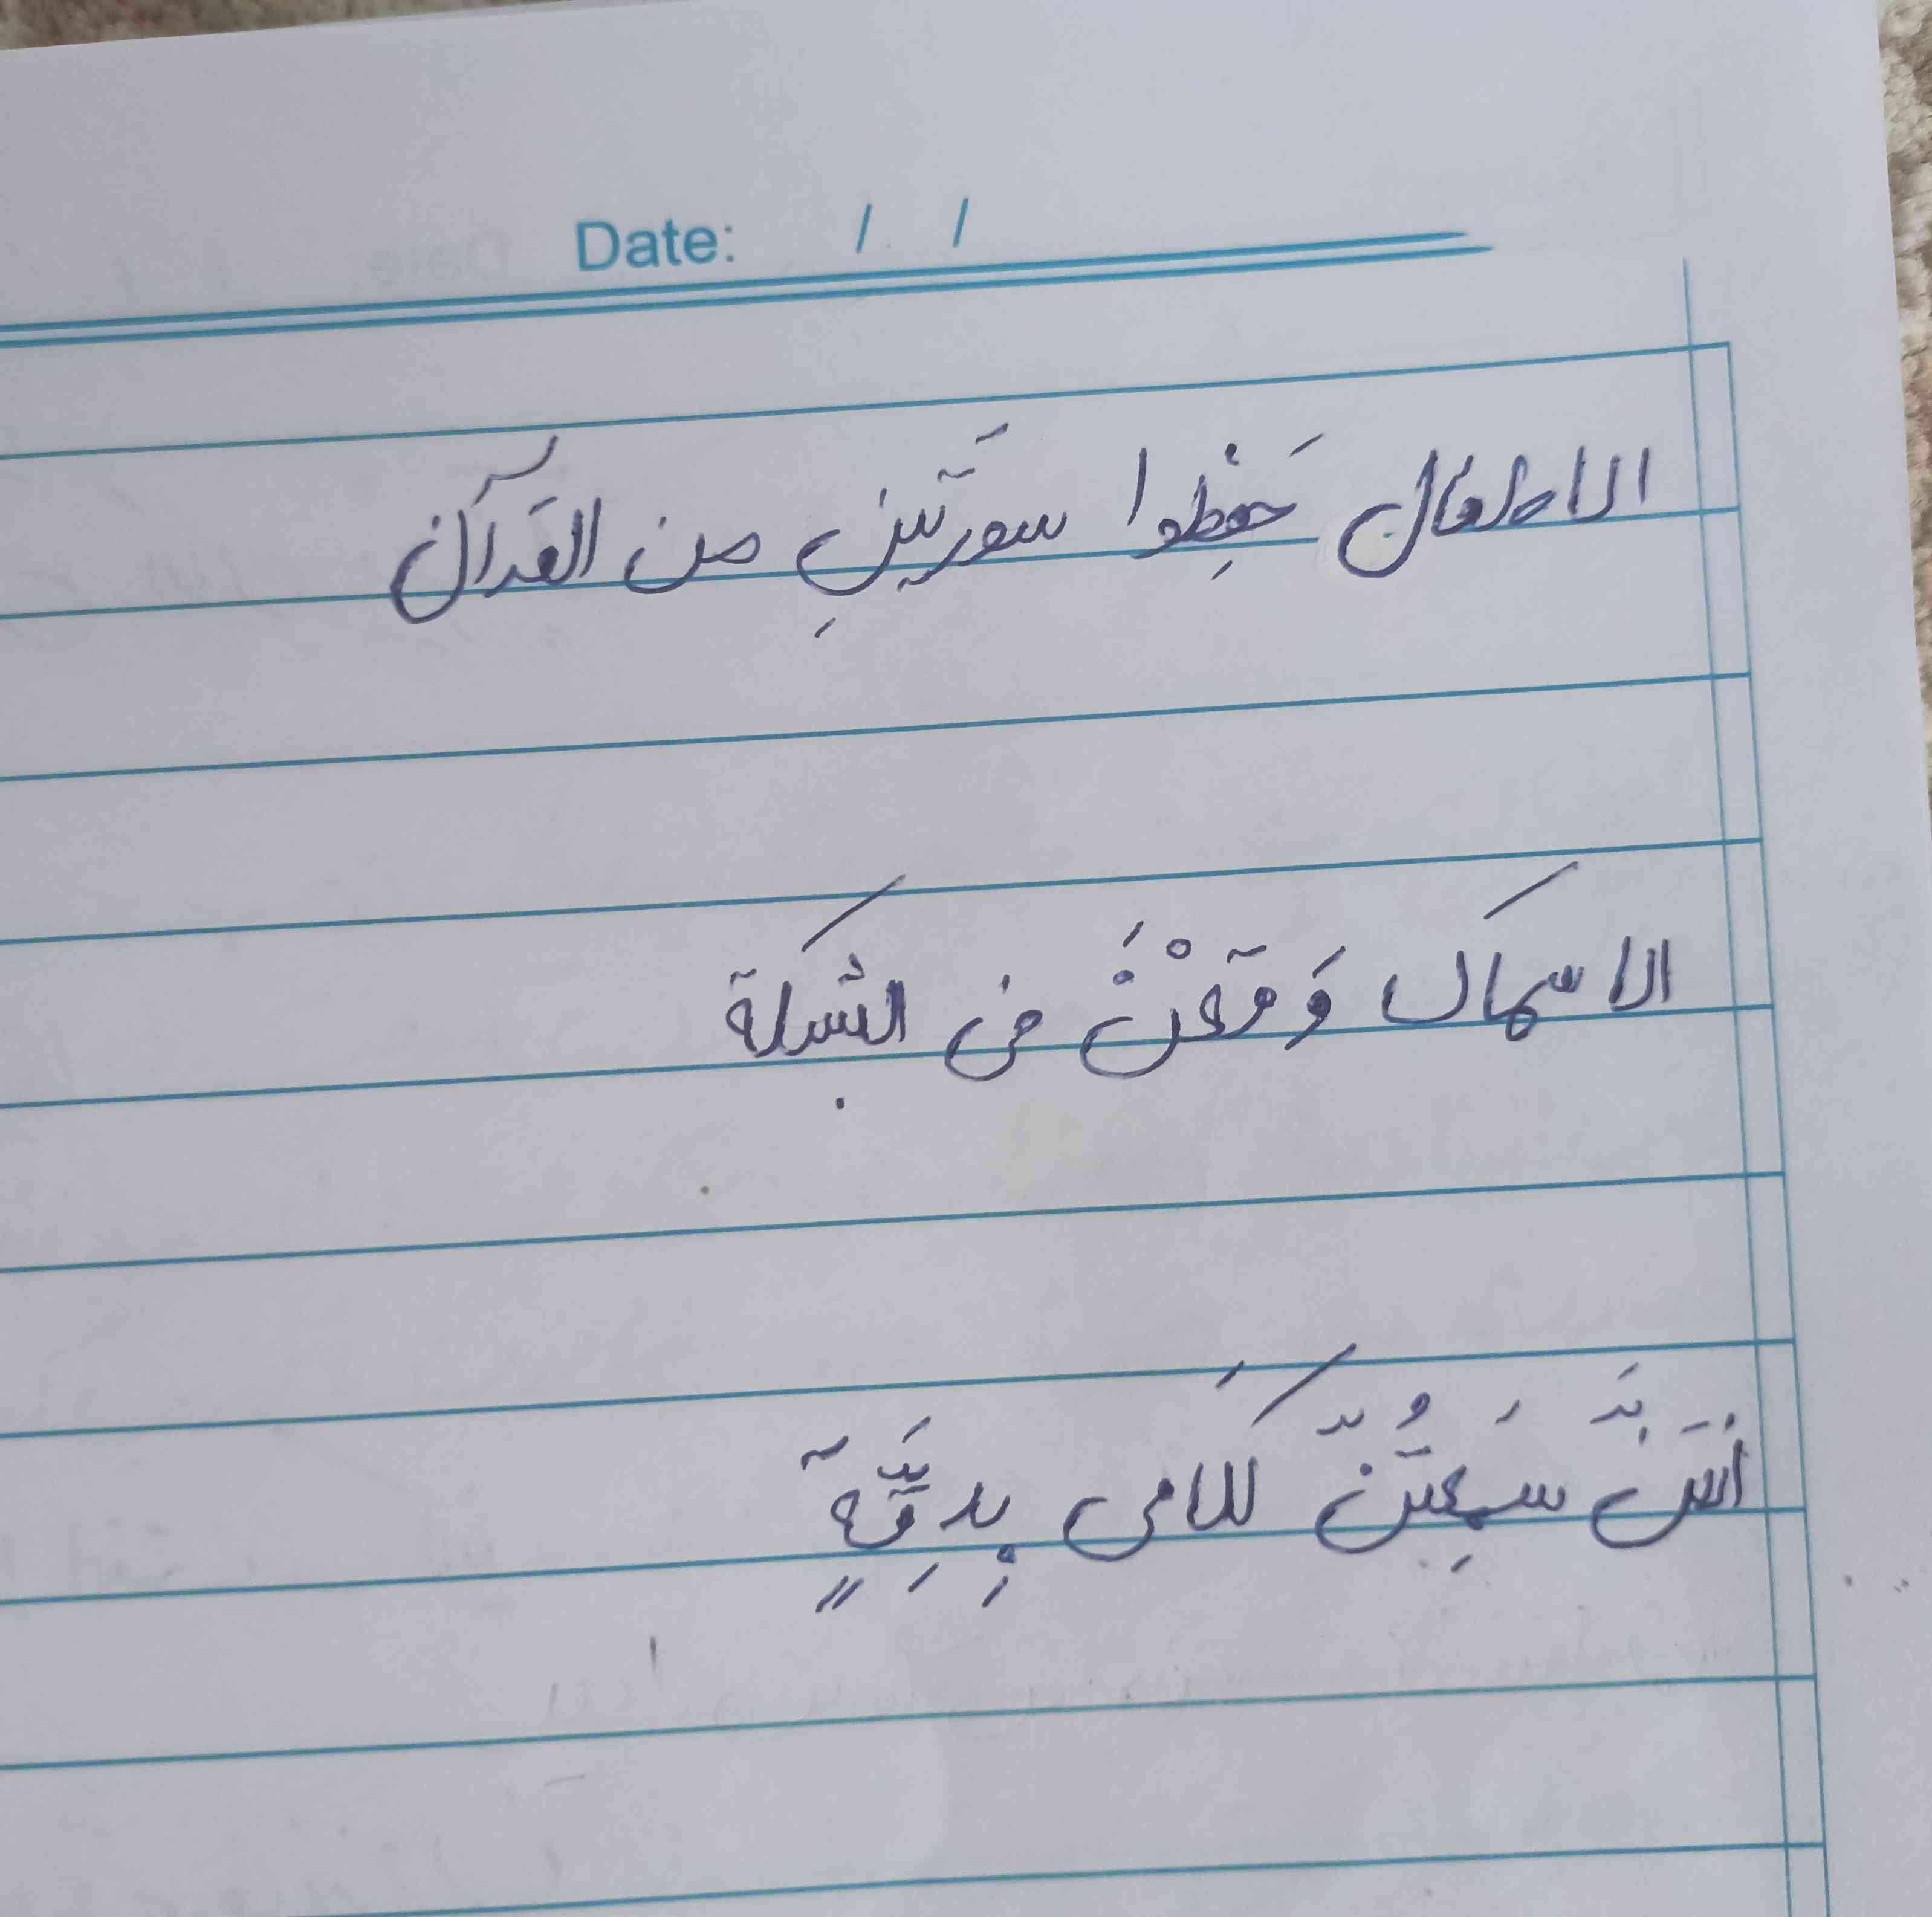 Date: / /
الاطفال حَفِظوا سورتَينِ من القرآن
الاسماك وَقعْنَ فى الشبكة
انتنَّ سَمِعتُنّ كَلامى بِدِقَّةٍ